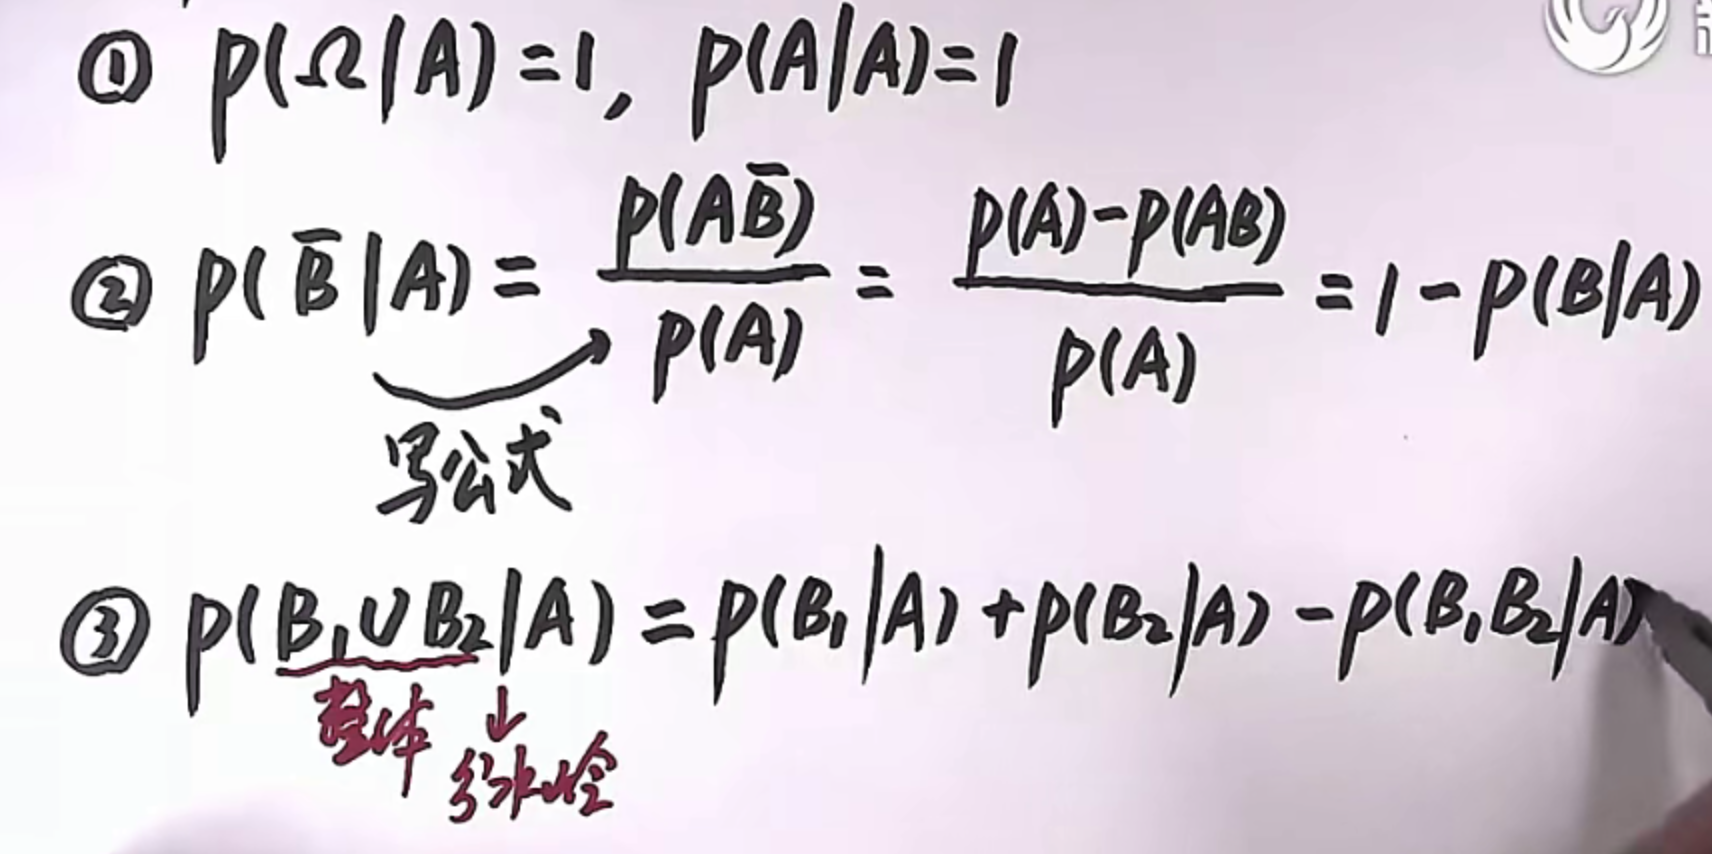 ① P(Ω|A)=1, P(A|A)=1
② P(B̅|A) = P(AB̅)/P(A) = (P(A)-P(AB))/P(A) = 1-P(B|A)
写公式
③ P(B₁∪B₂|A) = P(B₁|A)+P(B₂|A)-P(B₁B₂|A)
整体 ↓
分水岭